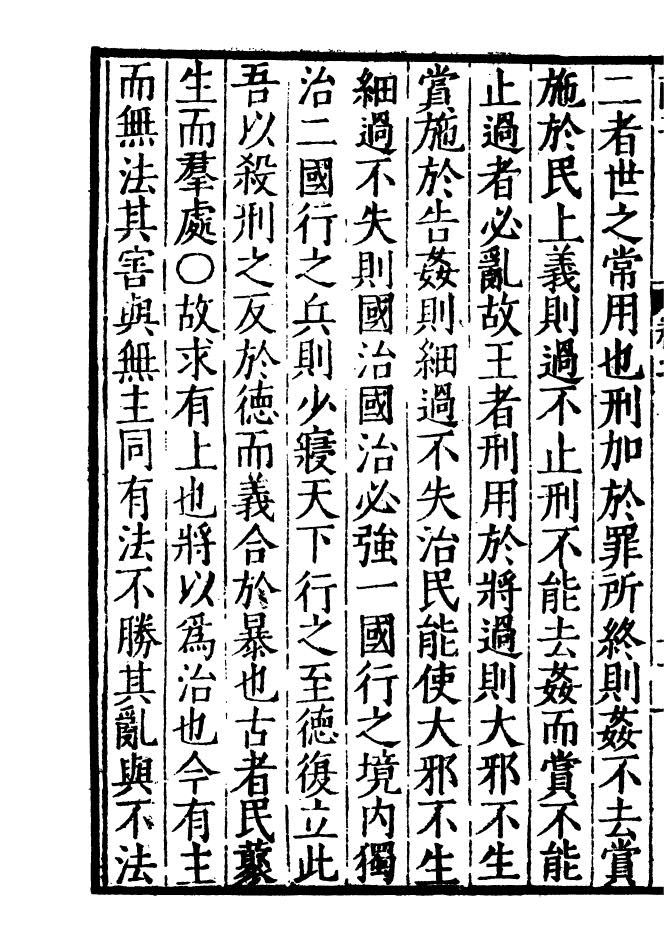 二者世之常用也刑加於罪所終則姦不去賞
施於民上義則過不止刑不能去姦而賞不能
止過者必亂故王者刑用於將過則大邪不生
賞施於告姦則細過不失治民能使大邪不生
細過不失則國治國治必強一國行之境內獨
治二國行之兵則少寢天下行之至德復立此
吾以殺刑之反於德而義合於暴也古者民藂
生而羣處〇故求有上也將以爲治也今有主
而無法其害與無主同有法不勝其亂與不法